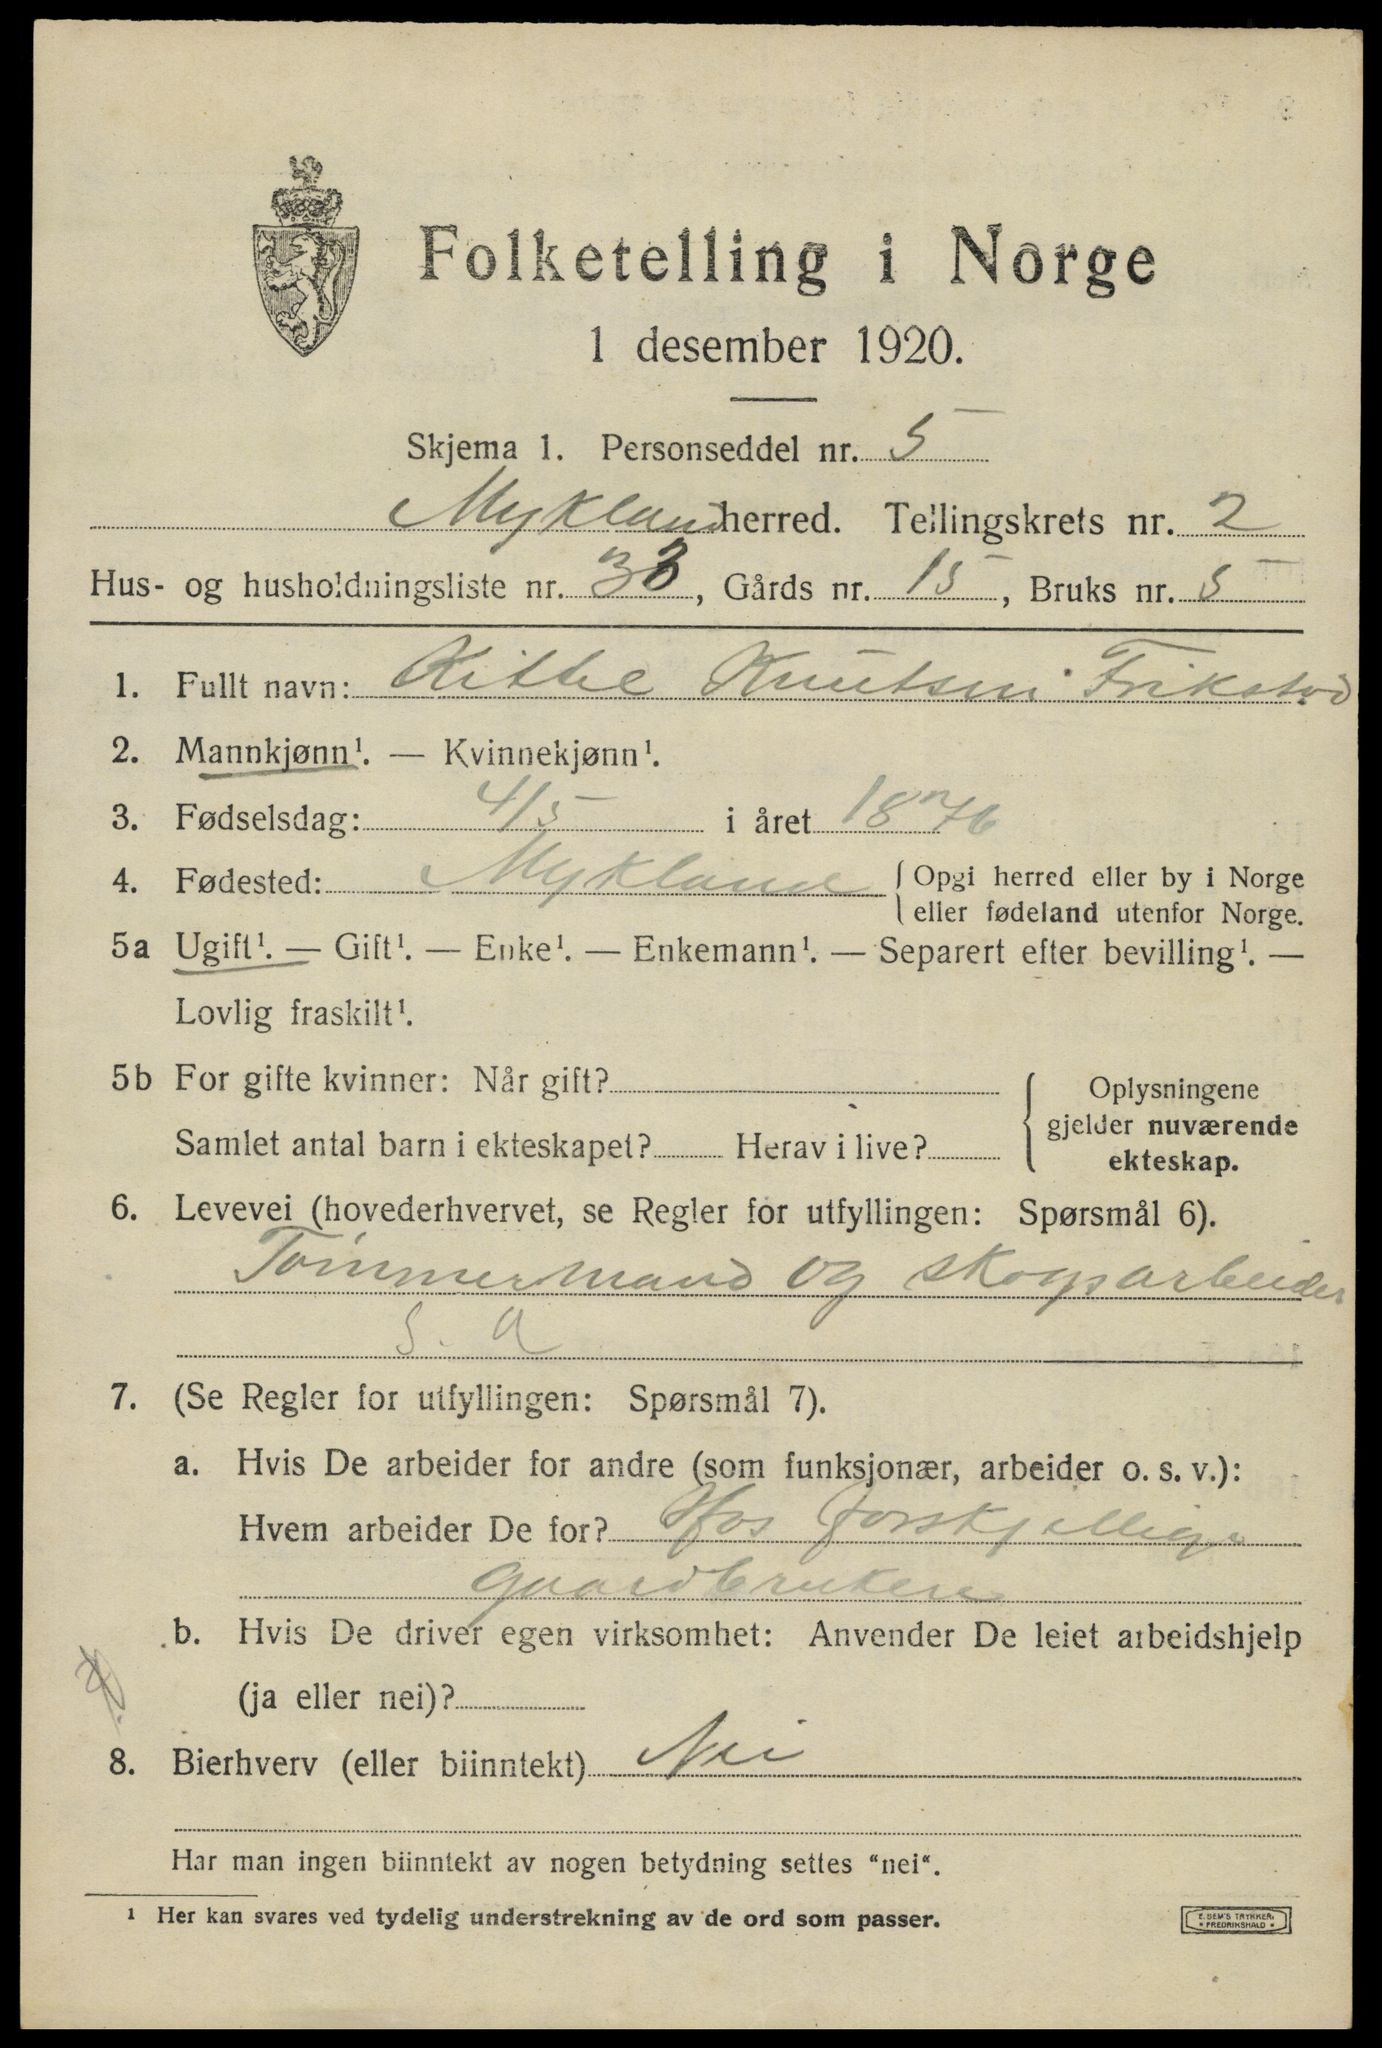 Folketelling i Norge
1 desember 1920.
Skjema 1. Personseddel nr. 5
Mykland herred. Tellingskrets nr. 2
Hus- og husholdningsliste nr. 33, Gårds nr. 15, Bruks nr. 5
1. Fullt navn: Kittel Knutsen Frikstad
2. Mannkjønn¹. — Kvinnekjønn¹.
3. Fødselsdag: 4/5 i året 1876
4. Fødested: Mykland { Opgi herred eller by i Norge
eller fødeland utenfor Norge.
5a Ugift¹. — Gift¹. — Enke¹. — Enkemann¹. — Separert efter bevilling¹. —
Lovlig fraskilt¹.
5b For gifte kvinner: Når gift? { Oplysningene
gjelder nuværende
Samlet antal barn i ekteskapet? Herav i live?
ekteskap.
6. Levevei (hovederhvervet, se Regler for utfyllingen: Spørsmål 6).
Tømmermand og skogsarbeider
S. a
7. (Se Regler for utfyllingen: Spørsmål 7).
a. Hvis De arbeider for andre (som funksjonær, arbeider o. s. v.):
Hvem arbeider De for? Hos forskjellige
gaardbrukere
b. Hvis De driver egen virksomhet: Anvender De leiet arbeidshjelp
(ja eller nei)?
8. Bierhverv (eller biinntekt) Nei
Har man ingen biinntekt av nogen betydning settes "nei".
¹ Her kan svares ved tydelig understrekning av de ord som passer.
E. SEM'S TRYKKERI
* FREDRIKSHALD *